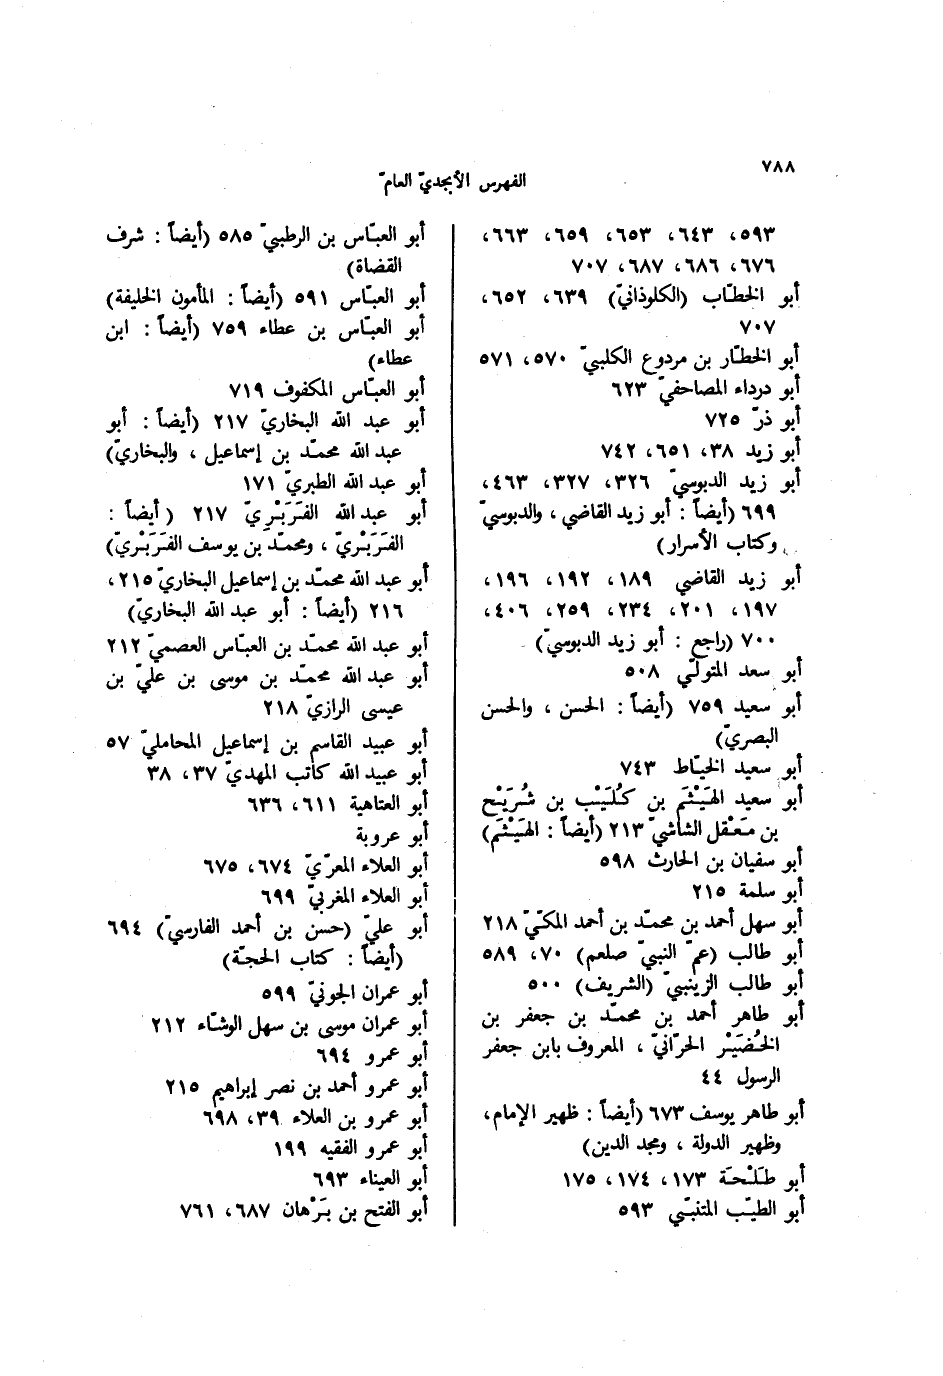 ٧٨٨
الفهرس الأبجديّ العامّ
٥٩٣، ٦٤٣، ٦٥٣، ٦٥٩، ٦٦٣،
٦٧٦، ٦٨٦، ٦٨٧، ٧٠٧
أبو الخطّاب (الكلوذانيّ) ٦٣٩، ٦٥٢،
٧٠٧
أبو الخطّار بن مردوع الكلبيّ ٥٧٠، ٥٧١
أبو درداء المصاحفيّ ٦٢٣
أبو ذرّ ٧٢٥
أبو زيد ٣٨، ٦٥١، ٧٤٢
أبو زيد الدبوسيّ ٣٢٦، ٣٢٧، ٤٦٣،
٦٩٩ (أيضاً : أبو زيد القاضي ، والدبوسيّ
، وكتاب الأسرار)
أبو زيد القاضي ١٨٩، ١٩٢، ١٩٦،
١٩٧، ٢٠١، ٢٣٤، ٢٥٩، ٤٠٦،
٧٠٠ (راجع : أبو زيد الدبوسيّ)
أبو سعد المتولّي ٥٠٨
أبو سعيد ٧٥٩ (أيضاً : الحسن ، والحسن
البصريّ)
أبو سعيد الخيّاط ٧٤٣
أبو سعيد الهَيْثَم بن كُلَيْب بن شُرَيْح
بن مَعْقل الشاشيّ ٢١٣ (أيضاً : الهَيْثَم)
أبو سفيان بن الحارث ٥٩٨
أبو سلمة ٢١٥
أبو سهل أحمد بن محمّد بن أحمد المكّيّ ٢١٨
أبو طالب (عمّ النبيّ صلعم) ٧٠، ٥٨٩
أبو طالب الزينبيّ (الشريف) ٥٠٠
أبو طاهر أحمد بن محمّد بن جعفر بن
الخُضَيْر الحرّانيّ ، المعروف بابن جعفر
الرسول ٤٤
أبو طاهر يوسف ٦٧٣ (أيضاً : ظهير الإمام،
وظهير الدولة ، ومجد الدين)
أبو طَلْحَة ١٧٣، ١٧٤، ١٧٥
أبو الطيّب المتنبّي ٥٩٣
أبو العبّاس بن الرطبيّ ٥٨٥ (أيضاً : شرف
القضاة)
أبو العبّاس ٥٩١ (أيضاً : المأمون الخليفة)
أبو العبّاس بن عطاء ٧٥٩ (أيضاً : ابن
عطاء)
أبو العبّاس المكفوف ٧١٩
أبو عبد الله البخاريّ ٢١٧ (أيضاً : أبو
عبد الله محمّد بن إسماعيل ، والبخاريّ)
أبو عبد الله الطبريّ ١٧١
أبو عبد الله الفَرَبْرِيّ ٢١٧ (أيضاً :
الفَرَبْريّ ، ومحمّد بن يوسف الفَرَبْريّ)
أبو عبد الله محمّد بن إسماعيل البخاريّ ٢١٥،
٢١٦ (أيضاً : أبو عبد الله البخاريّ)
أبو عبد الله محمّد بن العبّاس العصميّ ٢١٢
أبو عبد الله محمّد بن موسى بن عليّ بن
عيسى الرازيّ ٢١٨
أبو عبيد القاسم بن إسماعيل المحامليّ ٥٧
أبو عبيد الله كاتب المهديّ ٣٧، ٣٨
أبو العتاهية ٦١١، ٦٣٦
أبو عروبة
أبو العلاء المعرّيّ ٦٧٤، ٦٧٥
أبو العلاء المغربيّ ٦٩٩
أبو عليّ (حسن بن أحمد الفارسيّ) ٦٩٤
(أيضاً : كتاب الحجّة)
أبو عمران الجونيّ ٥٩٩
أبو عمران موسى بن سهل الوشّاء ٢١٢
أبو عمرو ٦٩٤
أبو عمرو أحمد بن نصر إبراهيم ٢١٥
أبو عمرو بن العلاء ٣٩، ٦٩٨
أبو عمرو الفقيه ١٩٩
أبو العيناء ٦٩٣
أبو الفتح بن بَرْهان ٦٨٧، ٧٦١